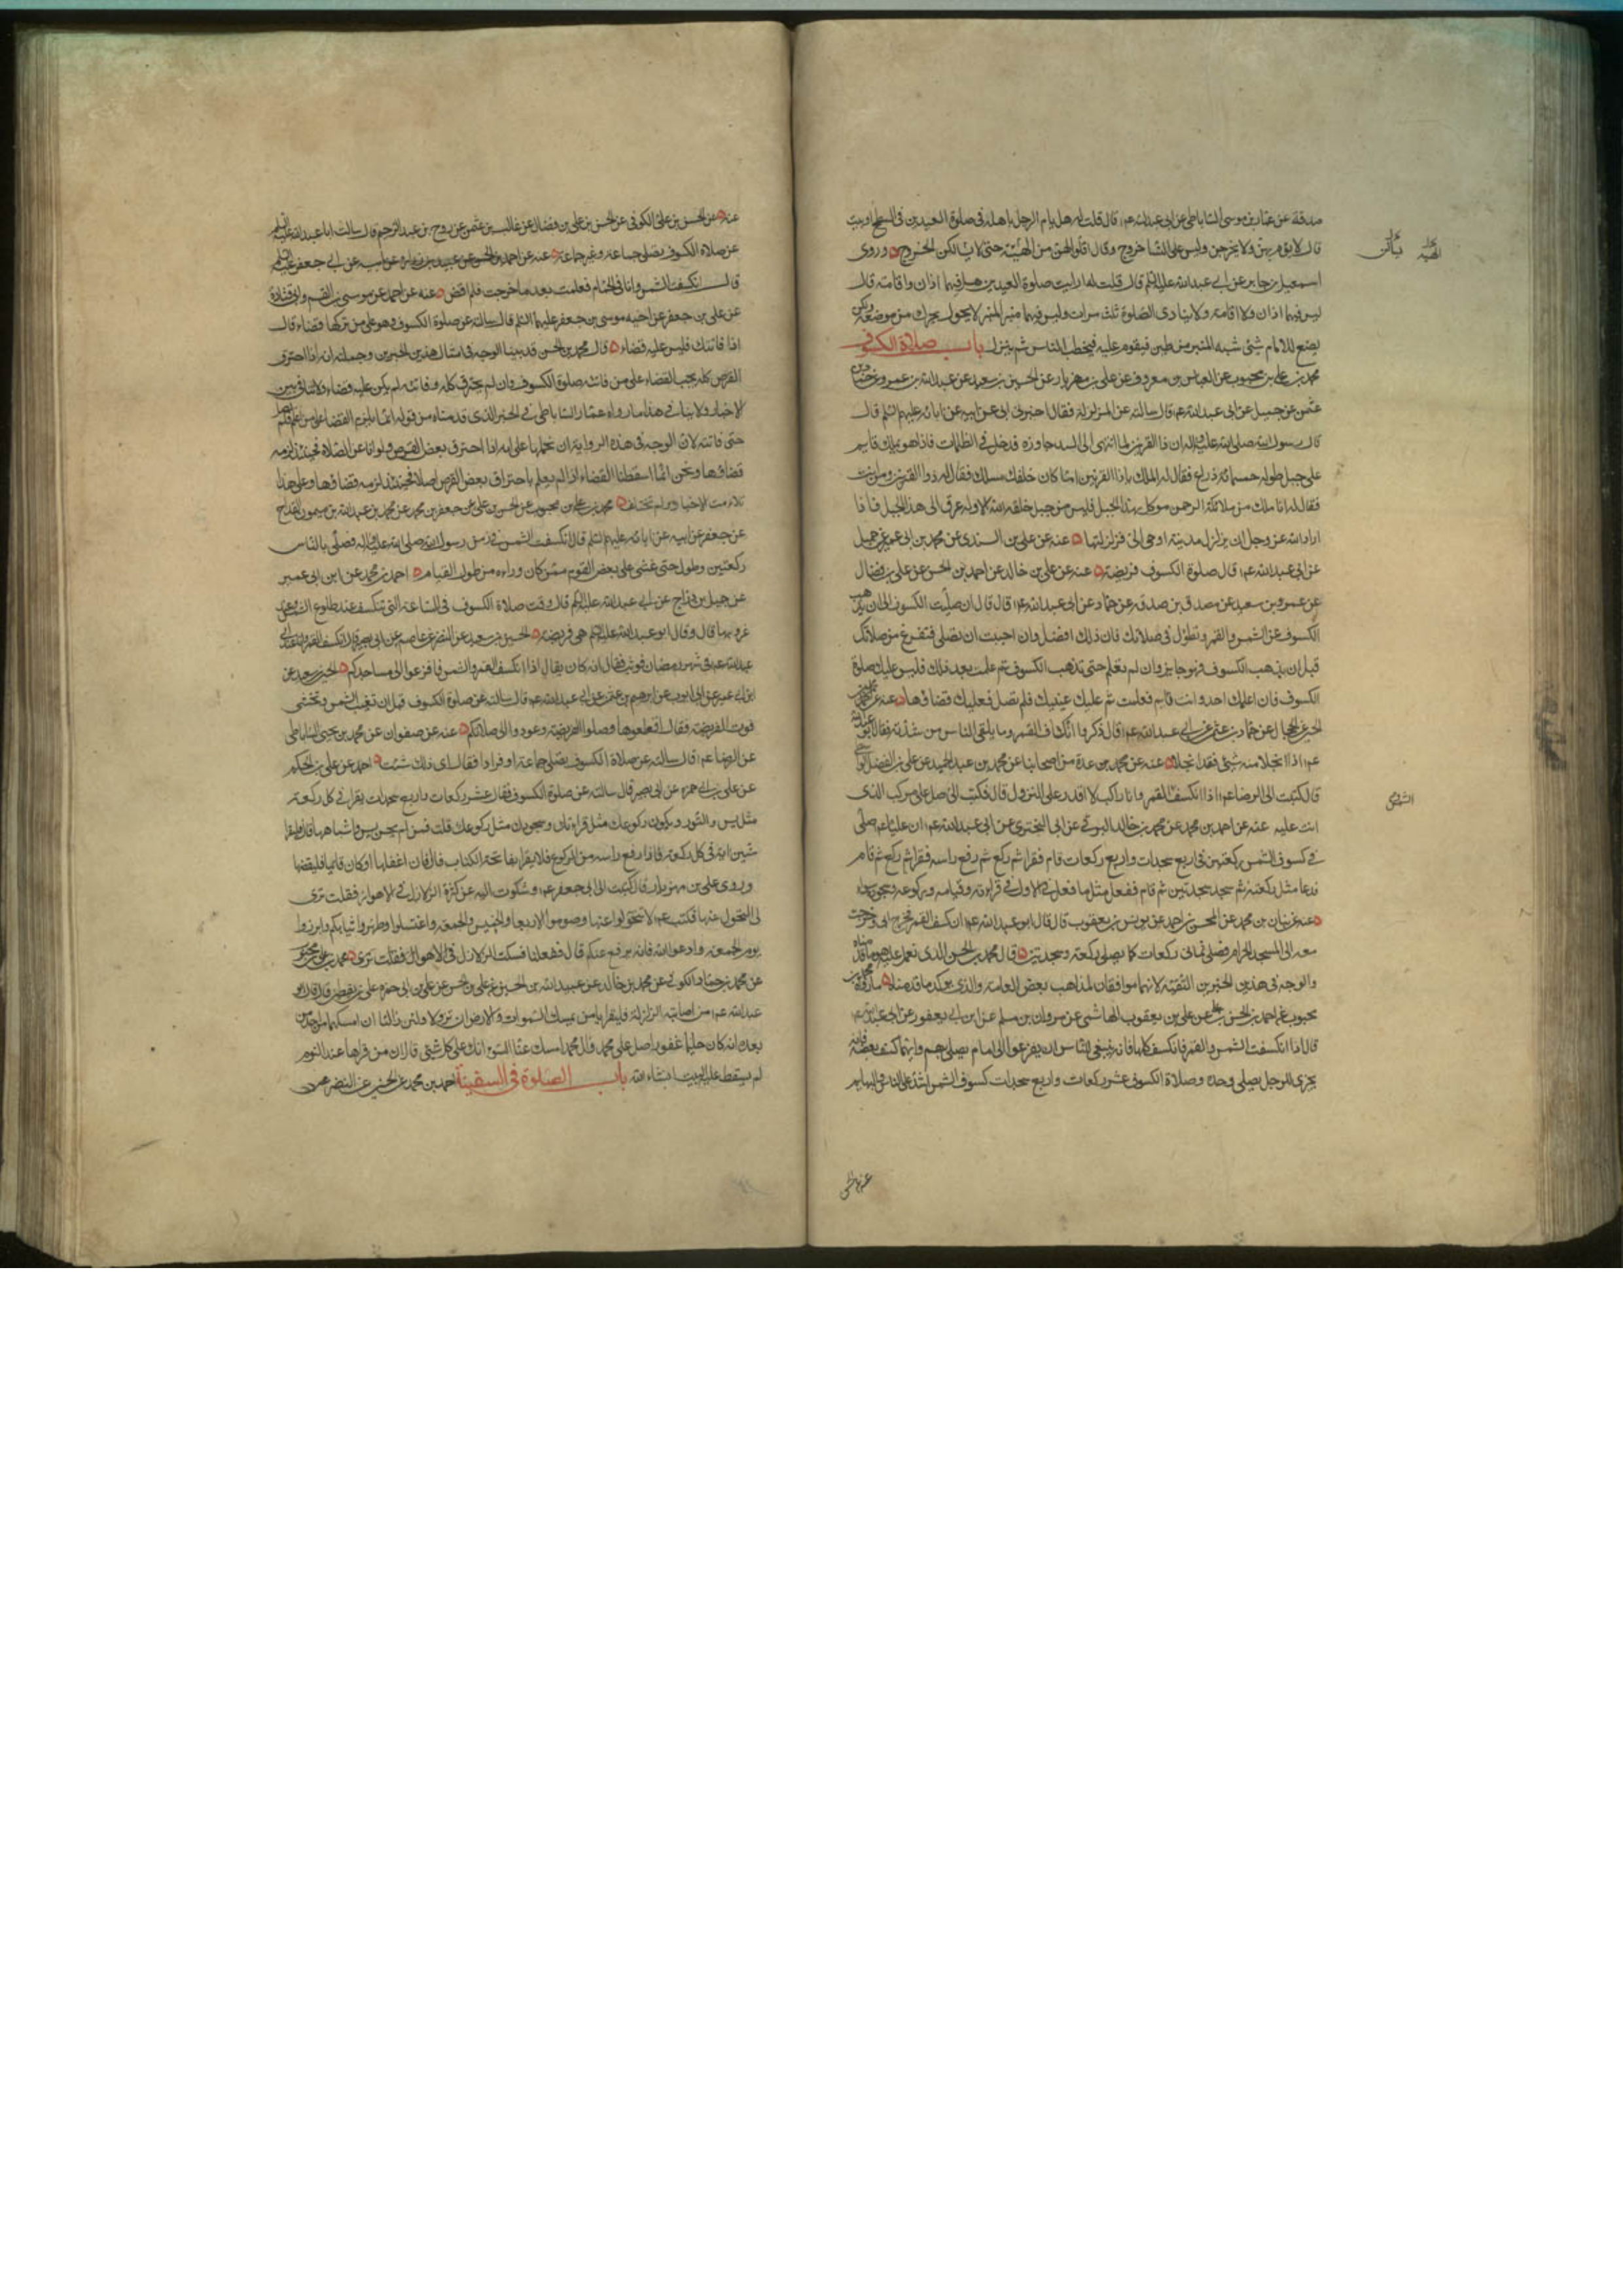 صدقة عن عمار بن موسى الساباطى عن ابى عبدالله عم قال قلت له هل يام الرجل باهله فى صلوة العيدين فى السطح او بيت
قال لا يؤم بهن ولا يخرجن وليس على النسا خروج وقال اقلوا لهن من الهيئة حتى لا يسألن الخروج وروى
اسمعيل بن جابر عن ابى عبدالله عليه السلم قال قلت له ارايت صلوة العيدين هل فيها اذان واقامة قال
ليس فيها اذان ولا اقامة ولا ينادى الصلوة ثلث مرات وليس فيها منبر المنبر لا يحول يحرك من موضعه ولكن
يصنع للامام شئى شبه المنبر من طين فيقوم عليه فيخطب الناس ثم ينزل باب صلاة الكسوف
محمد بن على بن محبوب عن العباس بن معروف عن على بن مهزيار عن الحسين بن سعيد عن عبدالله بن عمرو عن حماد بن
عثمن عن جميل عن ابى عبدالله عم قال سالته عن الزلزلة فقال اخبرنى ابى عن ابيه عن ابائه عليهم السلم قال
قال رسول الله صلى الله عليه واله ان ذا القرنين لما انتهى الى السد جاوزه فدخل فى الظلمات فاذا هو بملك قايم
على جبل طوله خمسمائة ذراع فقال له الملك ياذا القرنين اما كان خلفك مسلك فقال له ذوا القرنين ومن انت
فقال له انا ملك من ملائكة الرحمن موكل بهذا الجبل فليس من جبل خلقه الله الا وله عرق الى هذا الجبل فاذا
اراد الله عز وجل ان يزلزل مدينة اوحى الى فزلزلتها عنه عن على بن السندى عن محمد بن ابى عمير عن جميل
عن ابى عبدالله عم قال صلوة الكسوف فريضة عنه عن على بن خالد عن احمد بن الحسن عن على بن فضال
عن عمرو بن سعيد عن مصدق بن صدقه عن عمار عن ابى عبدالله عم قال قال ان صليت الكسوف الى ان يذهب
الكسوف عن الشمس والقمر وتطول فى صلاتك فان ذلك افضل وان احببت ان تصلى فتفرغ من صلاتك
قبل ان يذهب الكسوف فهو جايز وان لم تعلم حتى يذهب الكسوف ثم علمت بعد ذلك فليس عليك صلوة
الكسوف فان اعلمك احد وانت نايم فعلمت ثم غلبتك عينيك فلم تصل فعليك قضاؤها عنه عن محمد بن
الحسين عن الحجال عن حماد بن عثمن عن ابى عبدالله عم قال ذكروا انكساف القمر وما يلقى الناس من شدته فقال ابو عبدالله
عم اذا انجلا منه شئى فقد انجلا عنه عن محمد بن عدة من اصحابنا عن محمد بن عبد الحميد عن على بن الفضل الواسطى
قال كتبت الى الرضا عم اذا انكسف القمر وانا راكب لا اقدر على النزول قال فكتب الى صل على مركبك الذى
انت عليه عنه عن احمد بن محمد عن محمد بن خالد البرقى عن ابى البخترى عن ابى عبدالله عم ان عليا عم صلى
فى كسوف الشمس ركعتين فى اربع سجدات واربع ركعات قام فقرا ثم ركع ثم رفع راسه فقرا ثم ركع ثم قام
فدعا مثل ركعته ثم سجد سجدتين ثم قام ففعل مثل ما فعل فى الاولى فى قراءته وقيامه وركوعه وسجوده سواء
عنه عن بنان بن محمد عن المحسن بن احمد عن يونس بن يعقوب قال قال ابو عبدالله عم انكسف القمر فخرج ابى وخرجت
معه الى المسجد الحرام فصلى ثمانى ركعات كما يصلى ركعة وسجدتين قال محمد بن الحسن الذى نعمل عليه هو ما قدمناه
والوجه فى هذين الخبرين التقية لانهما موافقان لمذاهب بعض العامة والذى يؤكد ما قدمناه ما رواه محمد بن
محبوب عن احمد بن الحسن عن على بن يعقوب الهاشمى عن مروان بن مسلم عن ابن ابى يعفور عن ابى عبدالله عم
قال اذا انكسفت الشمس والقمر فانكسف كلها فانه ينبغى للناس ان يفزعوا الى امام يصلى بهم وايهما كسف بعضه فانه
يجزى الرجل يصلى وحده وصلاة الكسوف عشر ركعات واربع سجدات كسوف الشمس اشد على الناس والبهايم
عنه عن الحسن بن على الكوفى عن الحسن بن على بن فضال عن غالب بن عثمن عن روح بن عبد الرحيم قال سالت ابا عبدالله عليه السلم
عن صلاة الكسوف تصلى جماعة وغير جماعة عنه عن احمد بن الحسن عن عبيد بن زرارة عن ابيه عن ابى جعفر عليه السلم
قال انكسفت الشمس وانا فى الحمام فعلمت بعد ما خرجت فلم اقض عنه عن احمد عن موسى بن القسم وابى قتادة
عن على بن جعفر عن اخيه موسى بن جعفر عليهما السلم قال سالته عن صلوة الكسوف وهو على من تركها قضاء قال
اذا فاتتك فليس عليه قضاء قال محمد بن الحسن قد بينا الوجه فى امثال هذين الخبرين وجملته انه اذا احترق
القرص كله يجب القضاء على من فاتته صلوة الكسوف وان لم يحترق كله وفاتته لم يكن عليه قضاء ولا تنافى بين
الاخبار ولا ينافى هذا ما رواه عمار الساباطى فى الخبر الذى قدمناه من قوله انما يلزم القضا على من علم فلم يصل
حتى فاتته لان الوجه فى هذه الرواية ان نحملها على انه اذا احترق بعض القرص وتوانا عن الصلاة فحينئذ لزمه
قضاؤها ونحن انما اسقطنا القضاء اذا لم يعلم باحتراق بعض القرص اصلا فحينئذ لزمه قضاؤها وعلى هذا
تلاءمت الاخبار ولم تختلف محمد بن على بن محبوب عن الحسن بن على عن جعفر بن محمد عن محمد بن عبدالله بن ميمون القداح
عن جعفر عن ابيه عن ابائه عليهم السلم قال انكسفت الشمس فى زمن رسول الله صلى الله عليه واله فصلى بالناس
ركعتين وطول حتى غشى على بعض القوم ممن كان وراءه من طول القيام احمد بن محمد عن ابن ابى عمير
عن جميل بن دراج عن ابى عبدالله عليه السلم قال وقت صلاة الكسوف فى الساعة التى تنكسف عند طلوع الشمس وعند
غروبها قال وقال ابو عبدالله عليه السلم هى فريضة الحسين بن سعيد عن النضر عن عاصم عن ابى بصير قال انكسف القمر وانا عند ابى
عبدالله عم فى شهر رمضان فوثب فقال انه كان يقال اذا انكسف القمر والشمس فافزعوا الى مساجدكم الحسين بن سعيد عن
ابن ابى عمير عن ابى ايوب عن ابرهيم بن عثمن عن ابى عبدالله عم قال سالته عن صلوة الكسوف قبل ان تغيب الشمس وتخشى
فوت الفريضة فقال اقطعوها وصلوا الفريضة وعودوا الى صلاتكم عنه عن صفوان عن محمد بن يحيى الساباطى
عن الرضا عم قال سالته عن صلاة الكسوف تصلى جماعة او فرادا فقال اى ذلك شئت احمد عن على بن الحكم
عن على بن ابى حمزه عن ابى بصير قال سالته عن صلوة الكسوف فقال عشر ركعات واربع سجدات يقرا فى كل ركعة
مثل يس والنور ويكون ركوعك مثل قراءتك وسجودك مثل ركوعك قلت فمن لم يحسن يس واشباهها قال فليقرا
ستين اية فى كل ركعة فاذا رفع راسه من الركوع فلا يقرا بفاتحة الكتاب قال فان اغفلها او كان نايما فليقضها
وروى على بن مهزيار قال كتبت الى ابى جعفر عم وشكوت اليه عن كثرة الزلازل فى الاهواز فقلت ترى
لى التحول عنها فكتب عم لا تتحولوا عنها وصوموا الاربعا والخميس والجمعة واغتسلوا وطهروا ثيابكم وابرزوا
يوم الجمعة وادعوا الله فانه يرفع عنكم قال ففعلنا فسكنت الزلازل فى الاهواز فقلت ترى محمد بن على بن محبوب
عن محمد بن حماد الكوفى عن محمد بن خالد عن عبيدالله بن الحسين عن على بن الحسن عن على بن ابى حمزه على بن يقطين قال قال ابو
عبدالله عم من اصابته الزلزلة فليقرا يا من يمسك السموات والارض ان تزولا ولئن زالتا ان امسكهما من احد من
بعده انه كان حليما غفورا صل على محمد وال محمد امسك عنا السوء انك على كل شئى قال ان من قراها عند النوم
لم يسقط عليه البيت انشاء الله باب الصلوة فى السفينة احمد بن محمد عن الحسين عن النضر